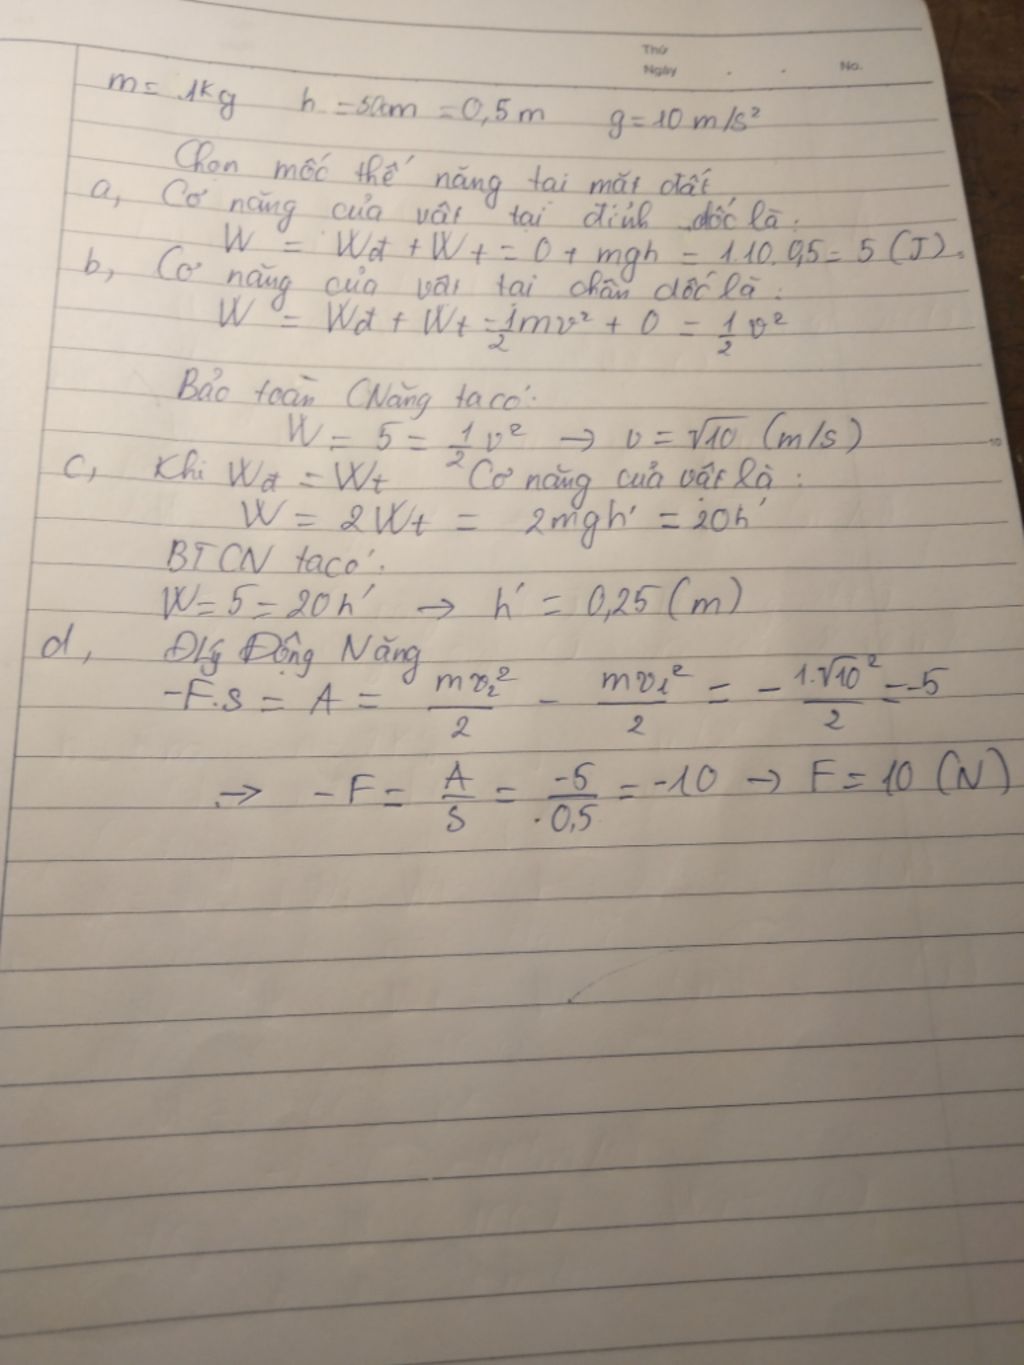 Thứ
Ngày . . No.
m = 1kg h = 50cm = 0,5 m g = 10 m/s²
Chọn mốc thế năng tại mặt đất
a, Cơ năng của vật tại đỉnh dốc là:
W = Wđ + Wt = 0 + mgh = 1.10.0,5 = 5 (J).
b, Cơ năng của vật tại chân dốc là:
W = Wđ + Wt = 1/2 mv² + 0 = 1/2 v²
Bảo toàn CNăng ta có:
W = 5 = 1/2 v² → v = √10 (m/s)
c, Khi Wđ = Wt Cơ năng của vật là:
W = 2Wt = 2mgh' = 20h'
BTCN ta có:
W = 5 = 20h' → h' = 0,25 (m)
d, ĐLý Động Năng
-F.s = A = mv₂²/2 - mv₁²/2 = - 1.√10²/2 = -5
→ -F = A/s = -5/0,5 = -10 → F = 10 (N)